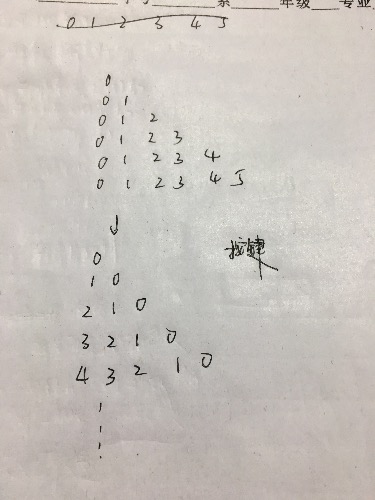 系 年级 专业
0 1 2 3 4 5
0
0 1
0 1 2
0 1 2 3
0 1 2 3 4
0 1 2 3 4 5
↓
0
1 0
2 1 0
3 2 1 0
4 3 2 1 0